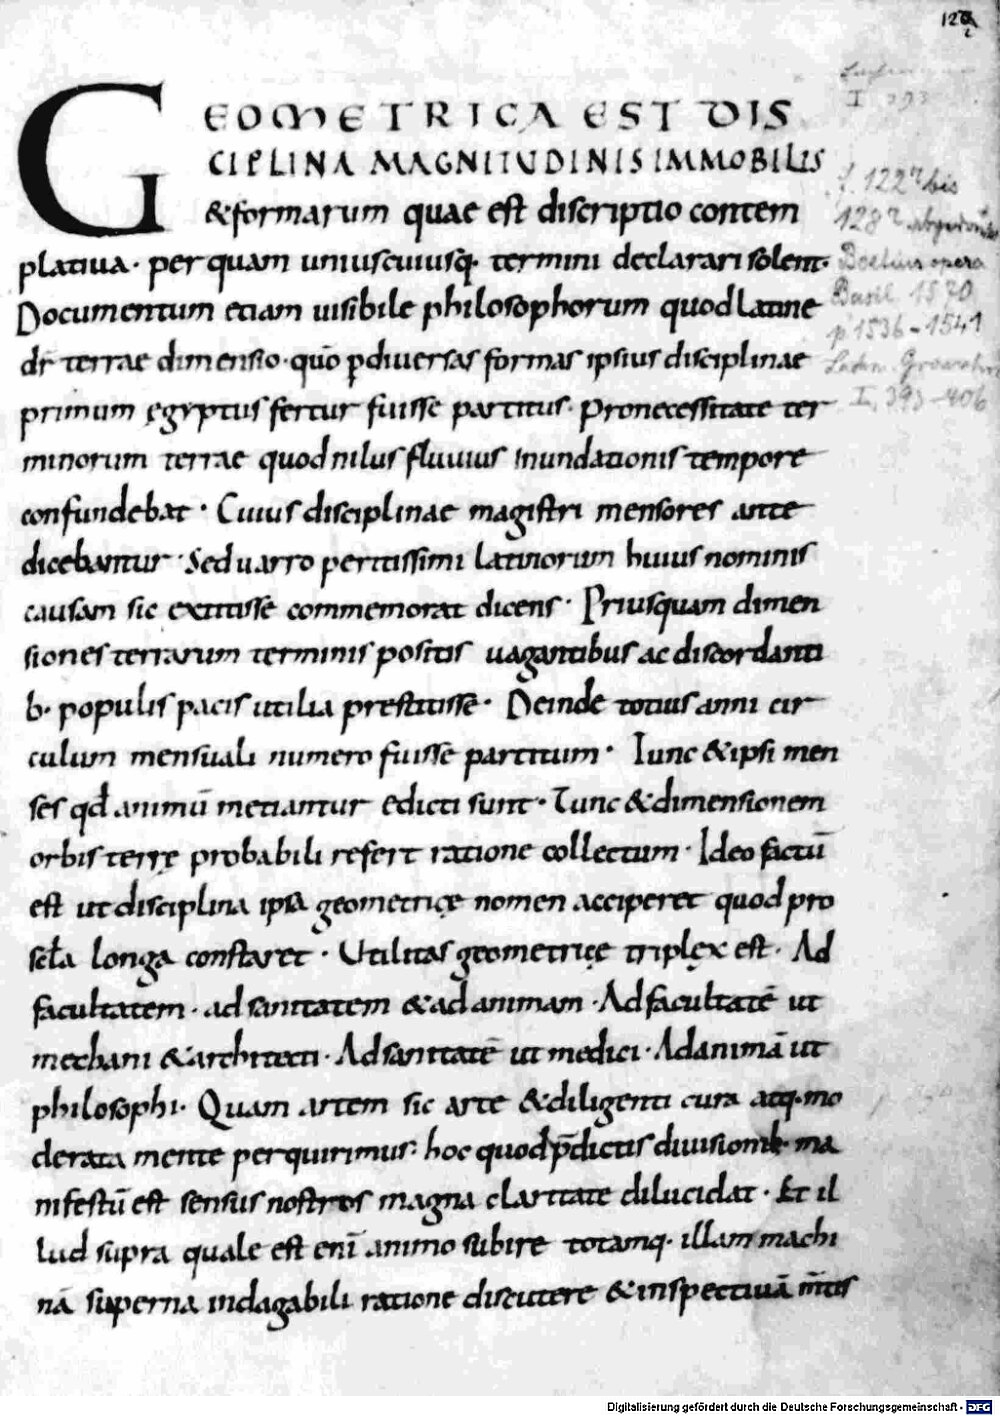 122
GEOMETRICA EST DIS
CIPLINA MAGNITUDINIS IMMOBILIS
&formarum quae est discriptio contem
platiua· per quam uniuscuiusq· termini declarari solent·
Documentum etiam uisibile philosophorum quod latine
dr̄ terrae dimensio· quō ꝑ diuersas formas ipsius disciplinae
primum ęgyptus fertur fuisse partitus· Pro necessitate ter
minorum terrae quod nilus fluuius inundationis tempore
confundebat· Cuius disciplinae magistri mensores ante
dicebantur· Sed uarro peritissimi latinorum huius nominis
causam sic extitisse commemorat dicens· Priusquam dimen
siones terrarum terminis positis uagantibus ac discordanti
b· populis pacis utilia prestitisse· Deinde totius anni cir
culum mensuali numero fuisse partitum· Tunc & ipsi men
ses qđ annū metiantur edicti sunt· Tunc & dimensionem
orbis terrę probabili refert ratione collectum· Ideo factū
est ut disciplina ipsa geometricę nomen acciperet quod pro
scł̄a longa constaret· Utilitas geometricę triplęx est· Ad
facultatem· ad sanitatem & ad animam· Ad facultatē ut
mechani & architecti· Ad sanitatē ut medici· Ad animā ut
philosophi· Quam artem sic arte & diligenti cura atq· mo
derata mente perquirimus: hoc quod p̄dictis diuisionib· ma
nifestū est sensus nostros magna claritate dilucidat· Et il
lud supra quale est enī animo subire totamq· illam machi
nā superna indagabili ratione discutere & inspectiuā m̄tis
I 393
f. 122r bis
128r abgedruckt
Boetius opera
Basil. 1570
p 1536-1541
Lachm. Gromatici
I, 393-406
Digitalisierung gefördert durch die Deutsche Forschungsgemeinschaft - DFG